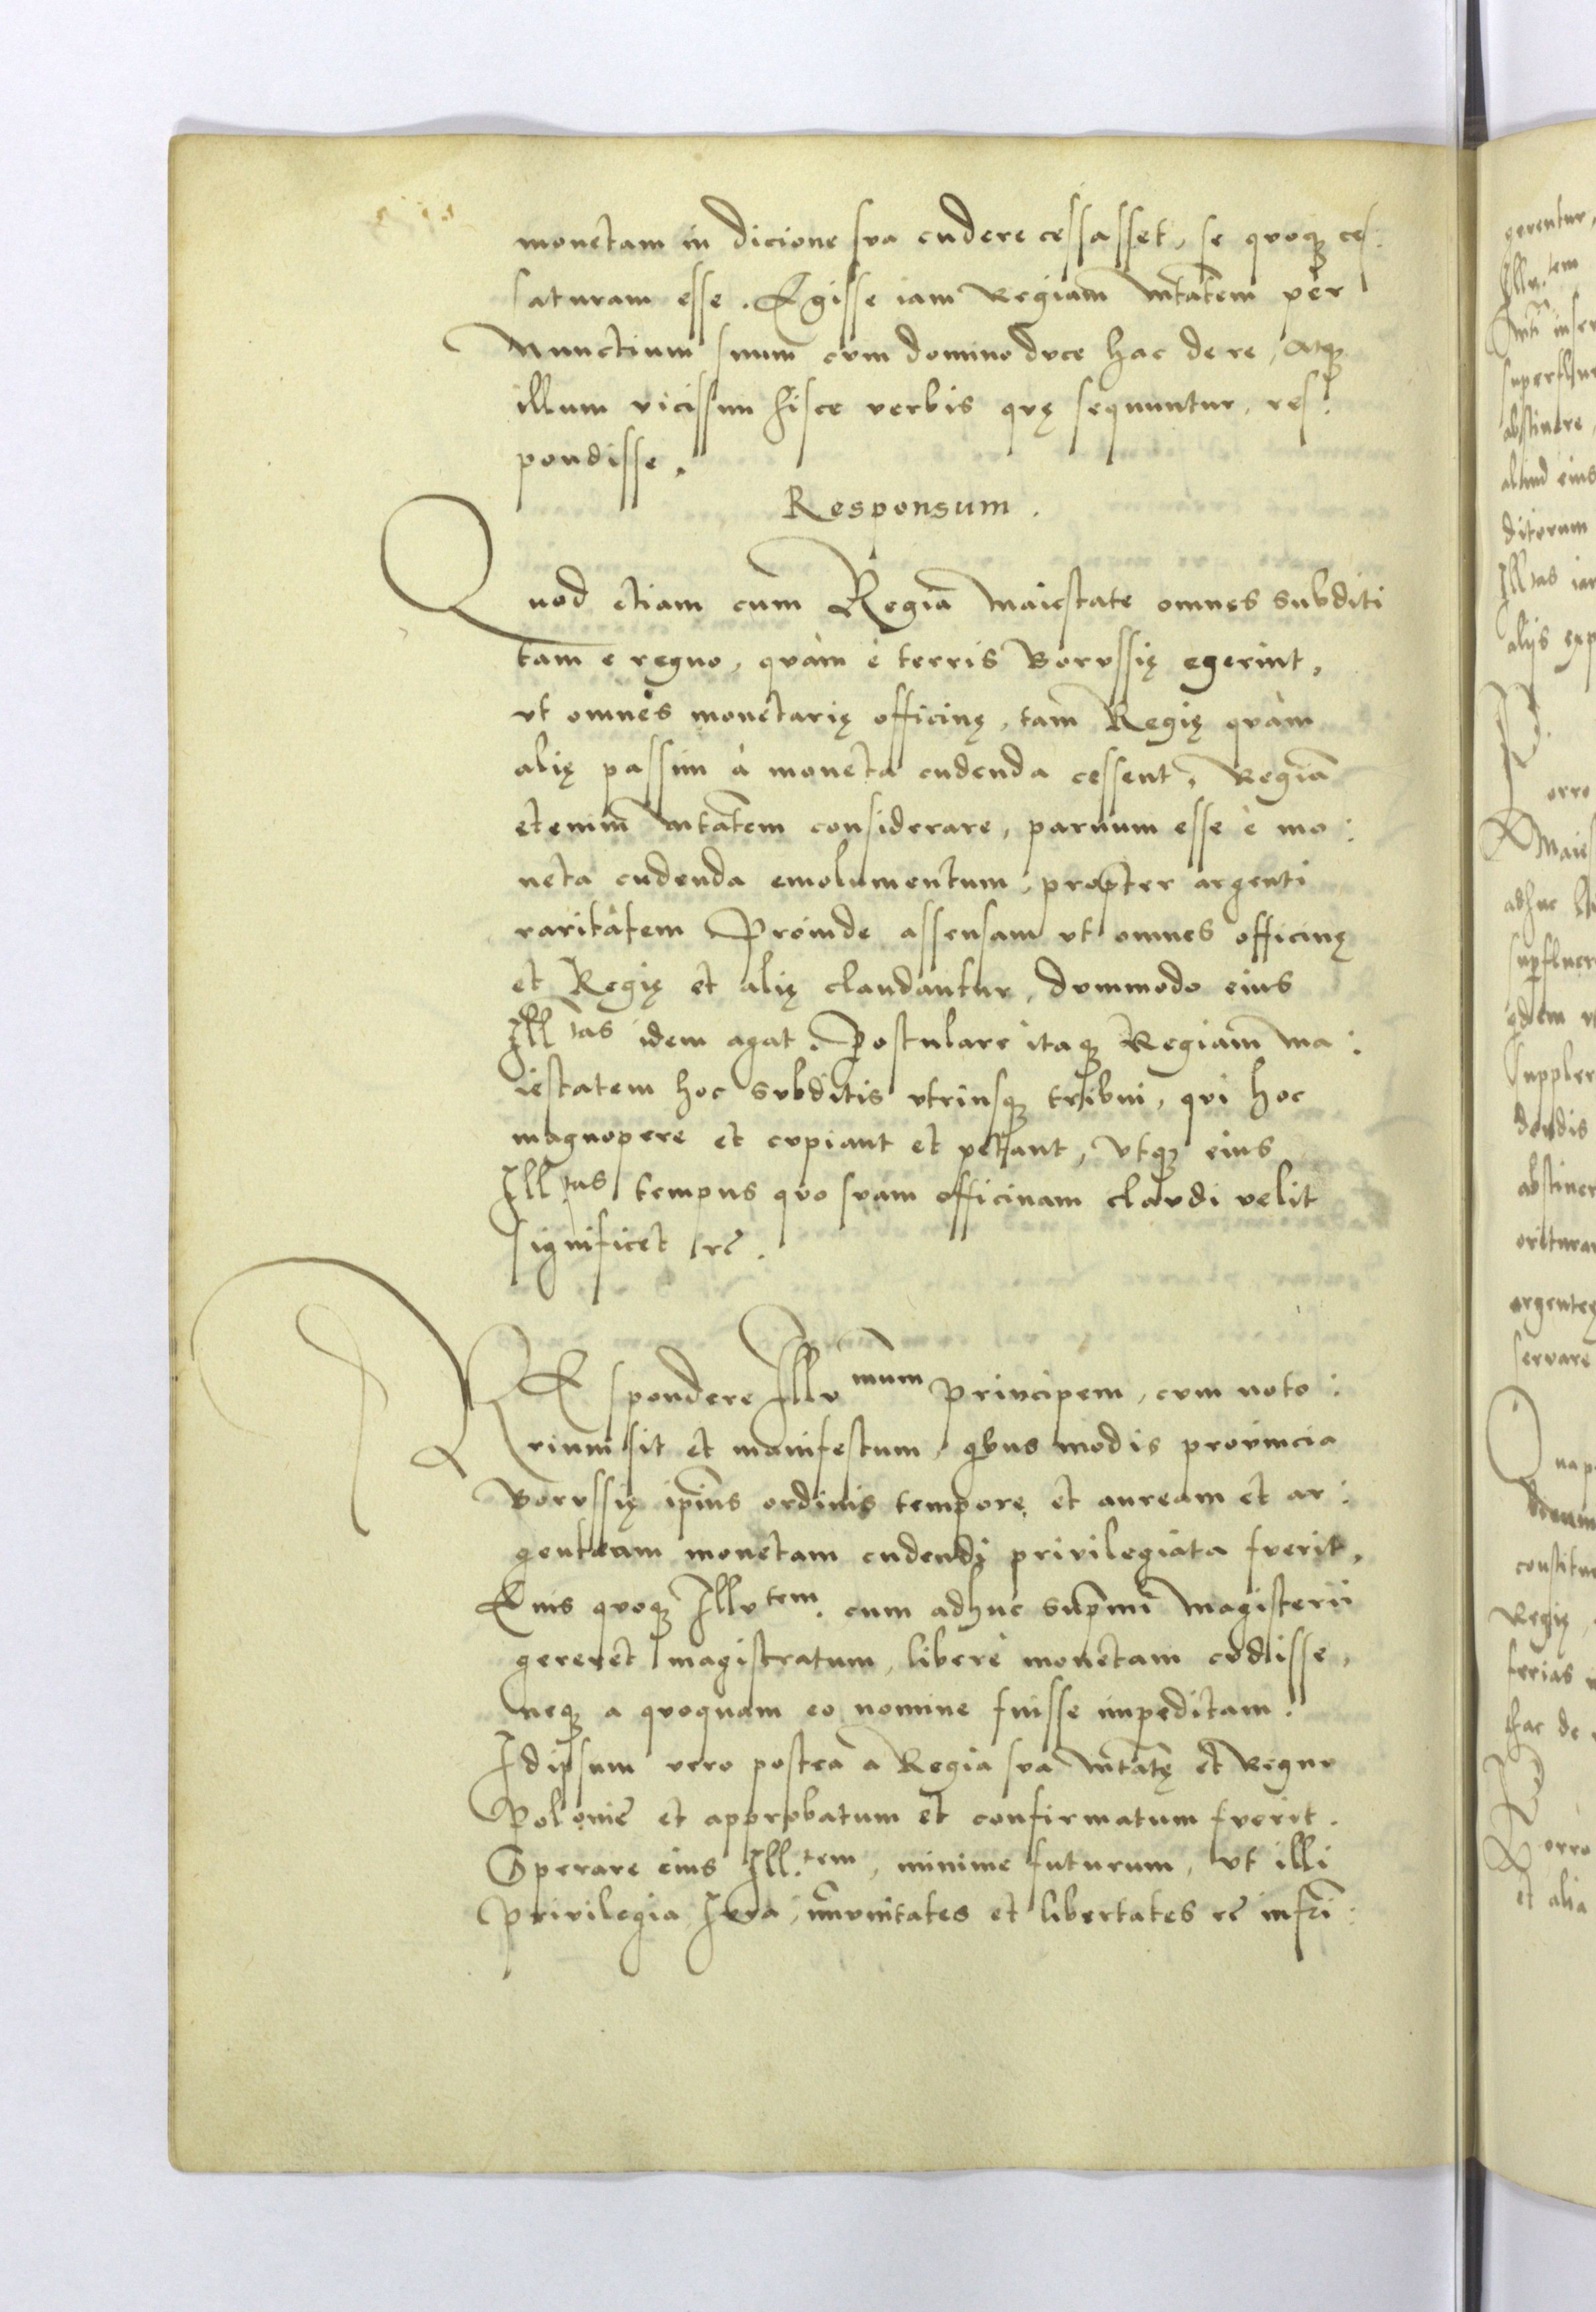 monetam in dicione sva cudere cessasset, se qvoqꝫ ces:
saturam esse. Egisse iam Regiam Mtatem per
Nunctium suum cvm domino dvce hac de re, Atqꝫ
illum vicissim hisce verbis qvę sequuntur, res:
pondisse.
Responsum.
Quod etiam cum Regia Maiestate omnes subditi
tam e regno, qvàm è terris Borvssię egerint,
vt omnes monetarię officinę, tam Regię qvàm
alię passim à moneta cudenda cessent, Regiã
etenim Mtatem considerare, paruum esse è mo:
neta cudenda emolumentum, propter argenti
raritatem Proinde assensam vt omnes officinę
et Regię et alię claudantur, dvmmodo eius
Ill tas idem agat. Postulare itaqꝫ Regiam ma:
iestatem hoc svbditis vtrinsqꝫ tribui, qvi hoc
magnopere et cvpiant et petant, vtqꝫ eius
Ill tas tempus qvo svam officinam clavdi velit
significet rc̃.
REspondere Illv mum principem, cvm noto:
rium sit et manifestum, qbus modis provincia
Borvssię ip̃ius ordinis tempore et auream et ar:
genteam monetam cudendi privilegiata fverit,
Eius qvoqꝫ Illv tem. cum adhuc sup̃mi Magisterii
gereret magistratum, liberè monetam cvdisse,
neqꝫ a qvoquam eo nomine fuisse impeditam.
Idipsum vero postea a Regia sva Mtatę et Regno
Poloniẽ et approbatum et confirmatum fverit.
Sperare eius Ill. tem, minime futurum, vt illi
Privilegia Jvra, im̃vnitates et libertates rc̃ infri:
gerentur,
Illv. tem
abstinere
ditorum
Ill tas
alijs
orro
dendis
servare
Regię
ferias
hac de
orro
et alia